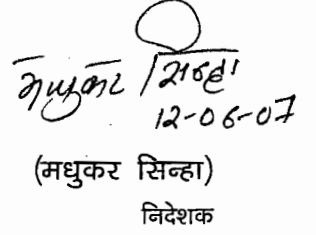 मधुकर सिन्हा
12-06-07
(मधुकर सिन्हा)
निदेशक